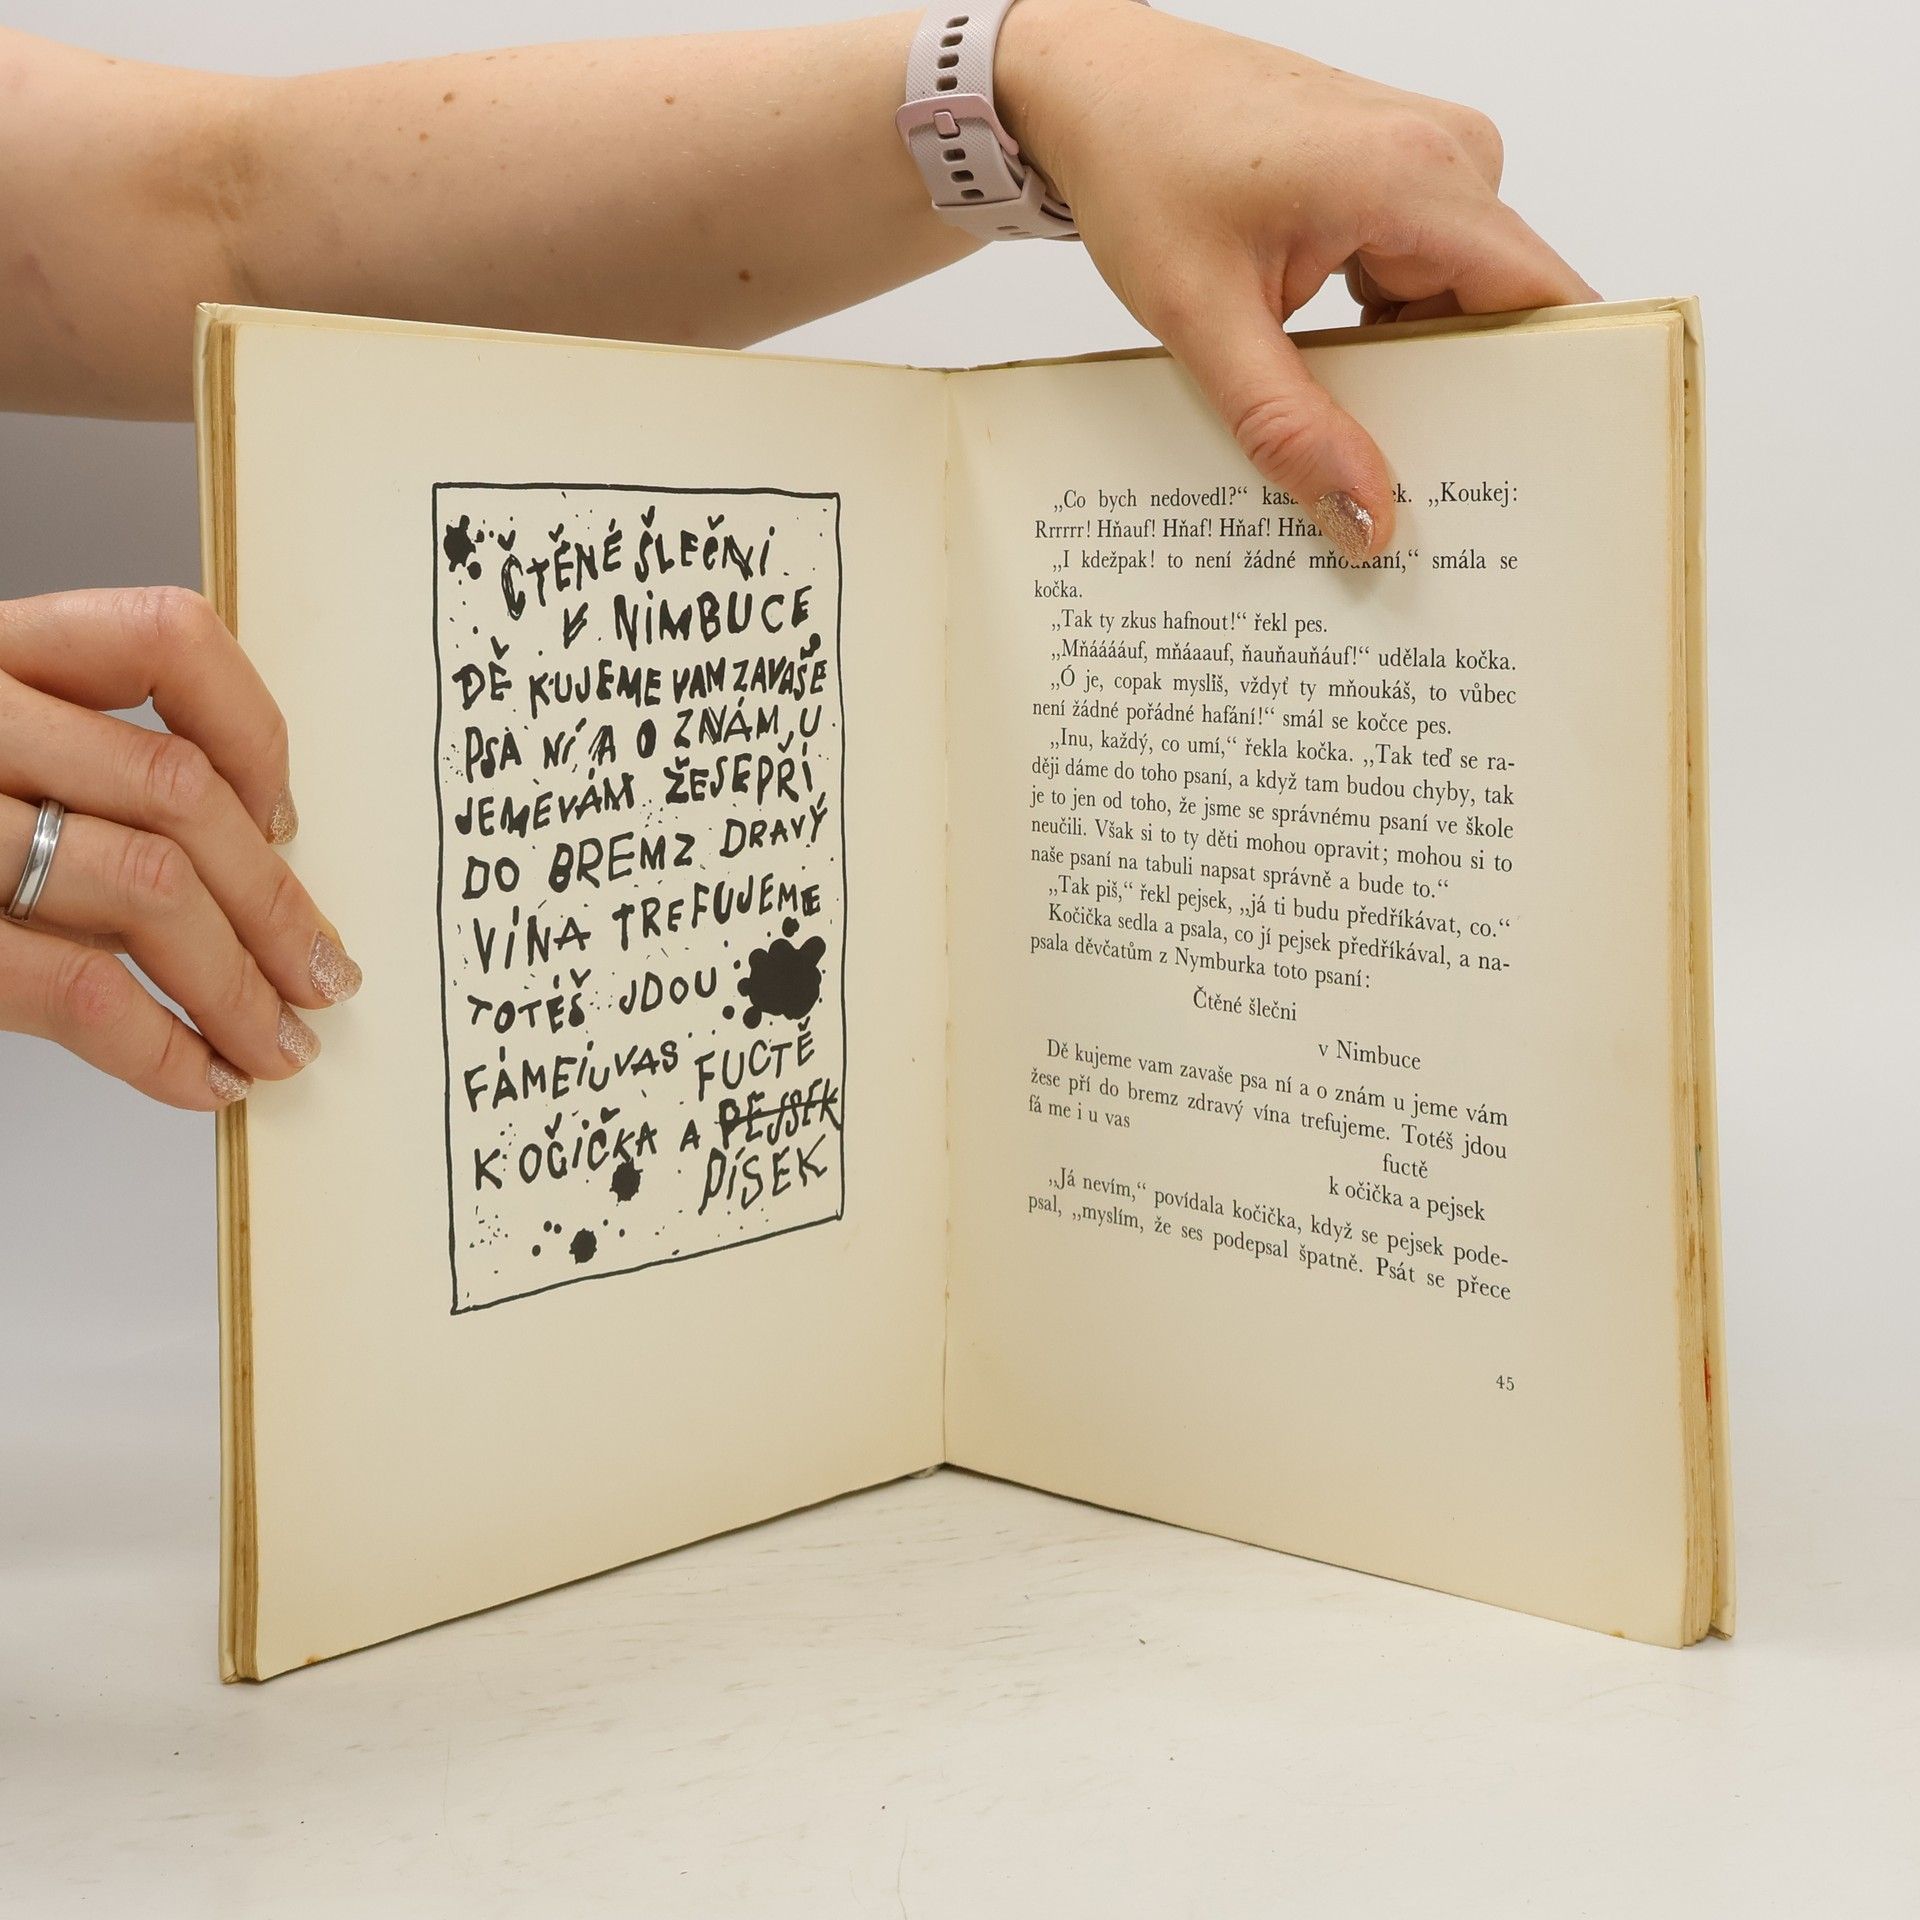 ČTĚNÉ ŠLEČNI
V NIMBUCE
DĚ KUJEME VAM ZAVAŠE
PSA NÍ A O ZNÁM U
JEMEVÁM ŽESEPŘÍ
DO BREMZ DRAVÝ
VÍNA TREFUJEME
TOTÉŠ JDOU
FÁMEIUVAS FUCTĚ
K OČIČKA A PEJSEK
PÍSEK
„Co bych nedovedl?“ „Koukej:
Rrrrrr! Hňauf! Hňaf! Hňaf!
„I kdežpak! to není žádné mňoukání,“ smála se
kočka.
„Tak ty zkus hafnout!“ řekl pes.
„Mňááááuf, mňáaauf, ňauňauňáuf!“ udělala kočka.
„Ó je, copak myslíš, vždyť ty mňoukáš, to vůbec
není žádné pořádné hafání!“ smál se kočce pes.
„Inu, každý, co umí,“ řekla kočka. „Tak teď se ra-
ději dáme do toho psaní, a když tam budou chyby, tak
je to jen od toho, že jsme se správnému psaní ve škole
neučili. Však si to ty děti mohou opravit; mohou si to
naše psaní na tabuli napsat správně a bude to.“
„Tak piš,“ řekl pejsek, „já ti budu předříkávat, co.“
Kočička sedla a psala, co jí pejsek předříkával, a na-
psala děvčatům z Nymburka toto psaní:
Čtěné šlečni
v Nimbuce
Dě kujeme vam zavaše psa ní a o znám u jeme vám
žese pří do bremz zdravý vína trefujeme. Totéš jdou
fá me i u vas
fuctě
k očička a pejsek
„Já nevím,“ povídala kočička, když se pejsek pode-
psal, „myslím, že ses podepsal špatně. Psát se přece
45